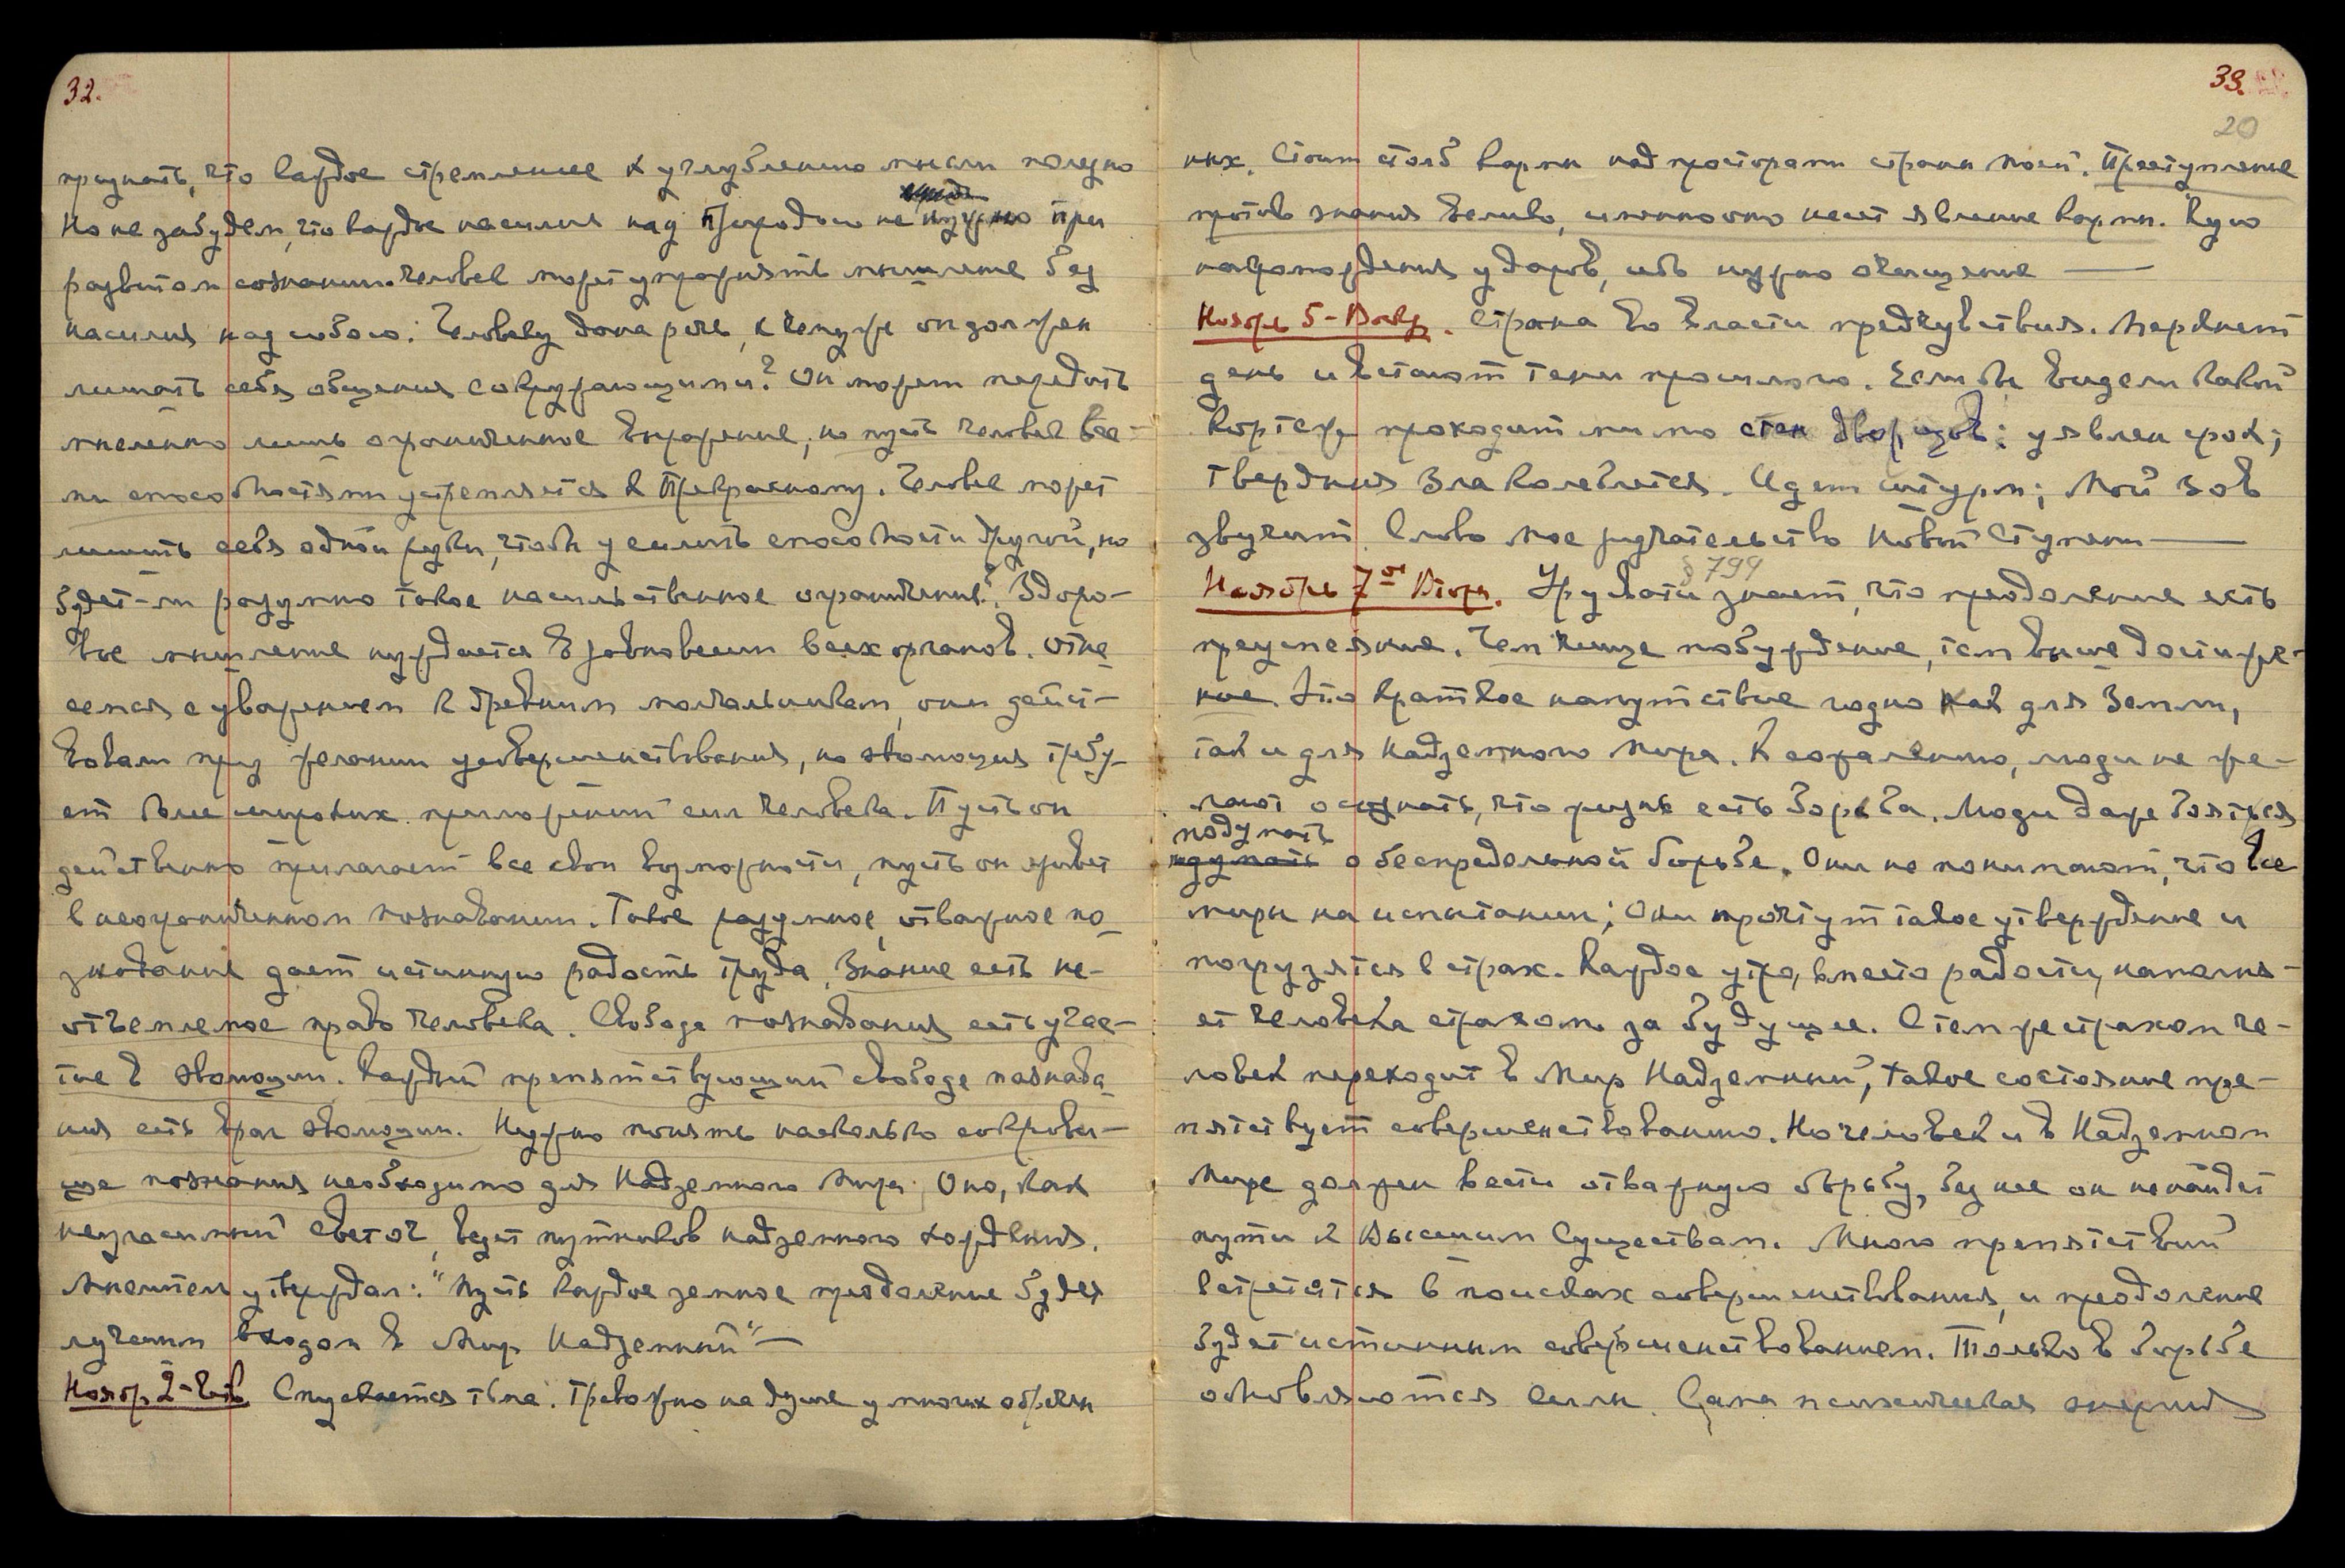 32.
признать, что каждое стремление к углублению мысли полезно
Но не забудем, что каждое насилие над Природою не нужно При
развитом сознании. Человек может упражнять мышление без
насилия над собою. Человеку дана речь, к чему же он должен
лишать себя общения с окружающими? Он может передать
мысленно лишь ограниченное выражение, но пусть человек все-
ми способностями устремляется к Прекрасному. Человек может
лишить себя одной руки, чтобы усилить способности другой, но
будет-ли разумно такое насильственное ограничение? Здоро-
вое мышление нуждается в равновесии всех органов. Отне
семся с уважением к древним молчальникам, они дейст-
вовали при желании усовершенствования, но эволюция требу-
ет более широких приложений сил человека. Пусть он
действенно прилагает все свои возможности, пусть он живет
в неограниченном познавании. Такое разумное, отважное по-
знавание дает истинную радость труда. Знание есть не-
отъемлемое право человека. Свобода познавания есть учас-
тие в эволюции. Каждый препятствующий свободе познава
ния есть враг эволюции. Нужно понять насколько сокрови-
ще познания необходимо для Надземного Мира. Оно, как
неугасимый светоч, ведет путников надземного хождения.
Мыслитель утверждал: "Пусть каждое земное преодоление будет
лучшим входом в Мир Надземный" —
Ноябр. 2-Четв. Спускается тьма. Тревожно на душе у многих обречен
33.
20
ных. Стоит столб кармы над просторами страны моей. Преступление
против знания велико, именно оно несет явление кармы. Кую
нагромождения ударов, ибо нужно очищение —
Ноябрь 5-Воскр. Страна во власти предчувствия. Меркнет
день и встают тени прошлого. Если бы видели какой
кортеж проходит мимо стен дворцов; уявлен срок;
твердыня Зла колеблется. Идет штурм; Мой зов
звучит. Слово Мое ручательство Новой Ступени —
§ 799
Ноябрь 7ое Вторн. Урусвати знает, что преодоление есть
преуспеяние. Чем чище побуждение, тем выше достиже-
ние. Это краткое напутствие годно как для Земли,
так и для Надземного Мира. К сожалению, люди не же-
лают осознать, что жизнь есть борьба. Люди даже боятся
подумать
о беспредельной борьбе. Они не понимают, что все
миры на испытании; Они прочтут такое утверждение и
погрузятся в страх. Каждое утро, вместо радости, наполня-
ет человека страхом за будущее. С тем же страхом че-
ловек переходит в Мир Надземный, такое состояние пре-
пятствует совершенствованию. Но человек и в Надземном
Мире должен вести отважную борьбу, без нее он не найдет
пути к Высшим Существам. Много препятствий
встретится в поисках совершенствования, и преодоление
будет истинным совершенствованием. Только в борьбе
обновляются силы. Сама психическая энергия